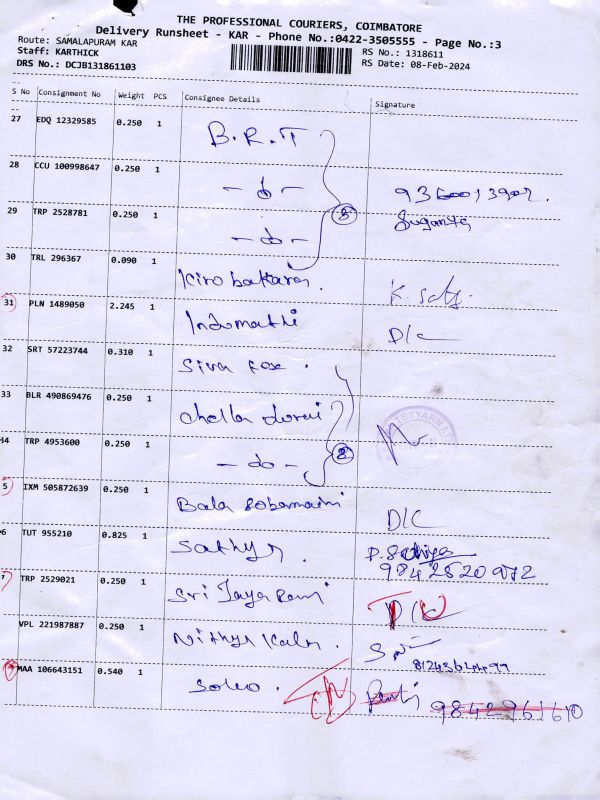 THE PROFESSIONAL COURIERS, COIMBATORE
Delivery Runsheet - KAR - Phone No.:0422-3505555 - Page No.:3
Route: SAMALAPURAM KAR
Staff: KARTHICK
DRS No.: DCJB131861103
RS No.: 1318611
RS Date: 08-Feb-2024
S No Consignment No Weight PCS Consignee Details Signature
27 EDQ 12329585 0.250 1 B.R.T
28 CCU 100998647 0.250 1 -do-
29 TRP 2528781 0.250 1 -do- 3 Suganya
30 TRL 296367 0.090 1
31 PLN 1489050 2.245 1 Indumathi D/C
32 SRT 57223744 0.310 1 Siva
33 BLR 490869476 0.250 1 Chella durai
34 TRP 4953600 0.250 1 -do- 2
5 IXM 505872639 0.250 1 Bala D/C
6 TUT 955210 0.825 1 Sathya
7 TRP 2529021 0.250 1 Sri Jaya Rani D/C
VPL 221987887 0.250 1 Nithya Kala
MAA 106643151 0.540 1 9842961610